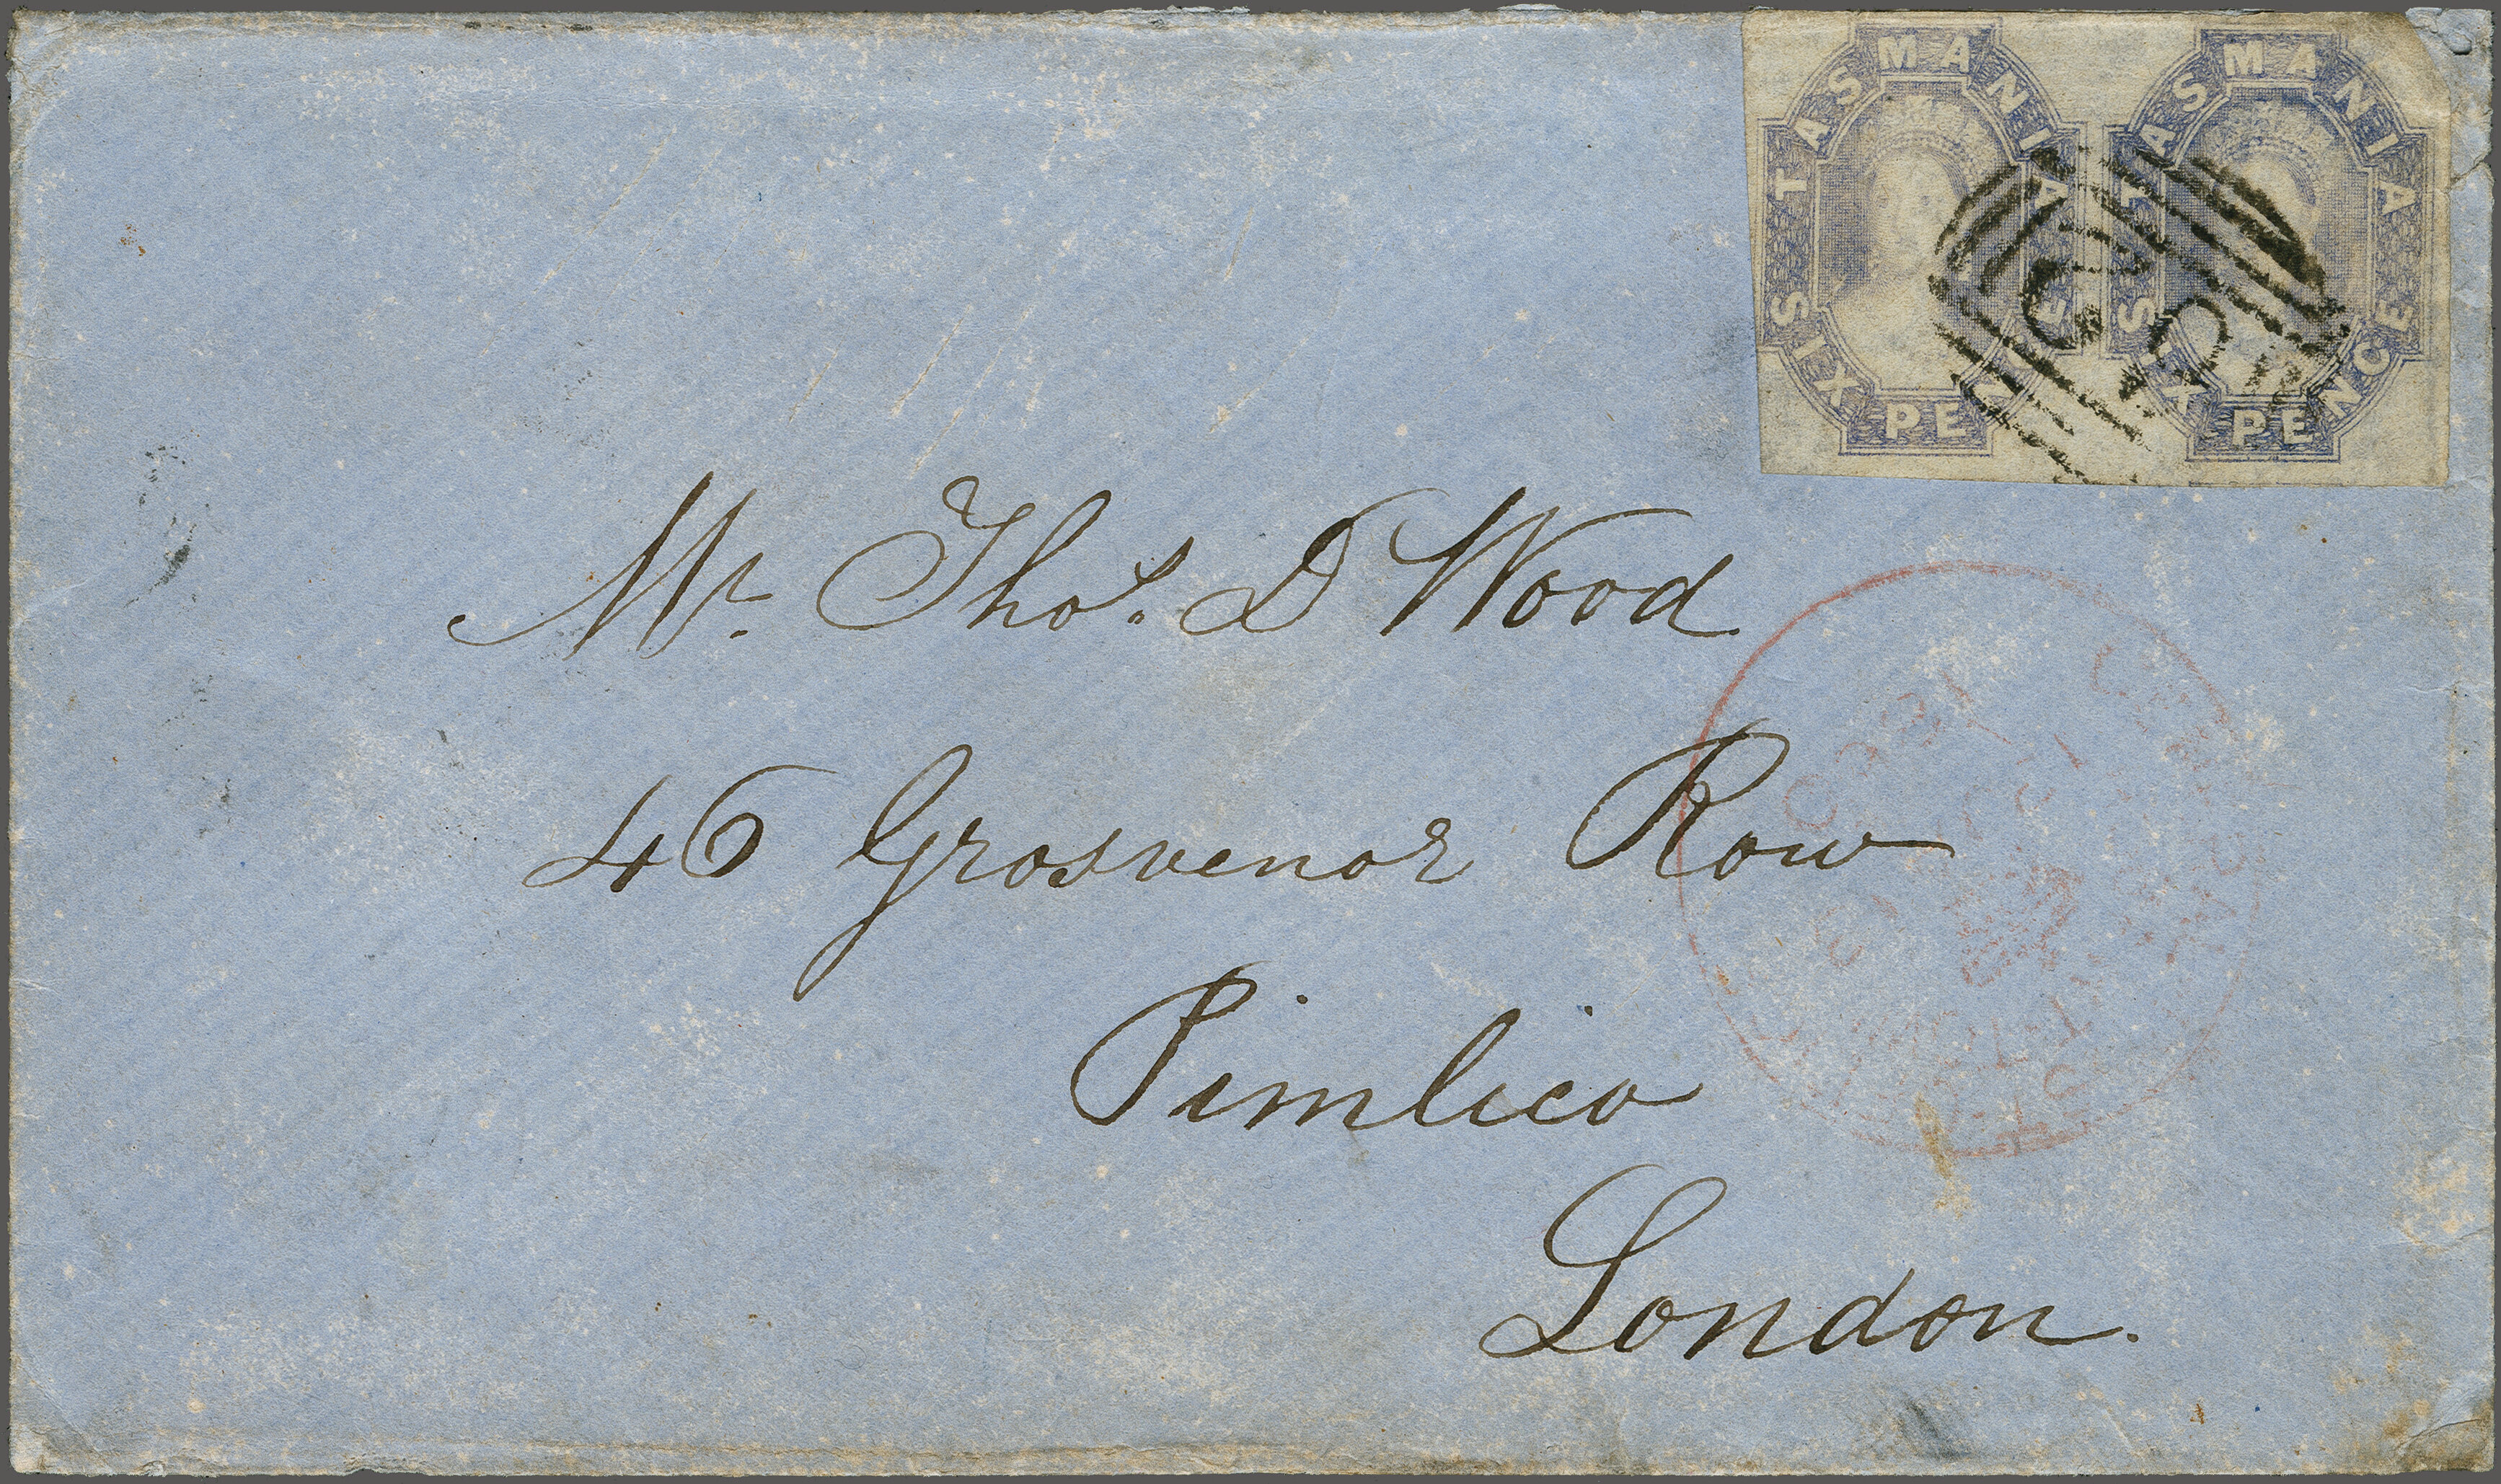 TASMANIA TASMANIA
SIX PENCE SIX PENCE
Mr. Thos. D Wood
46 Grosvenor Row
Pimlico
London.